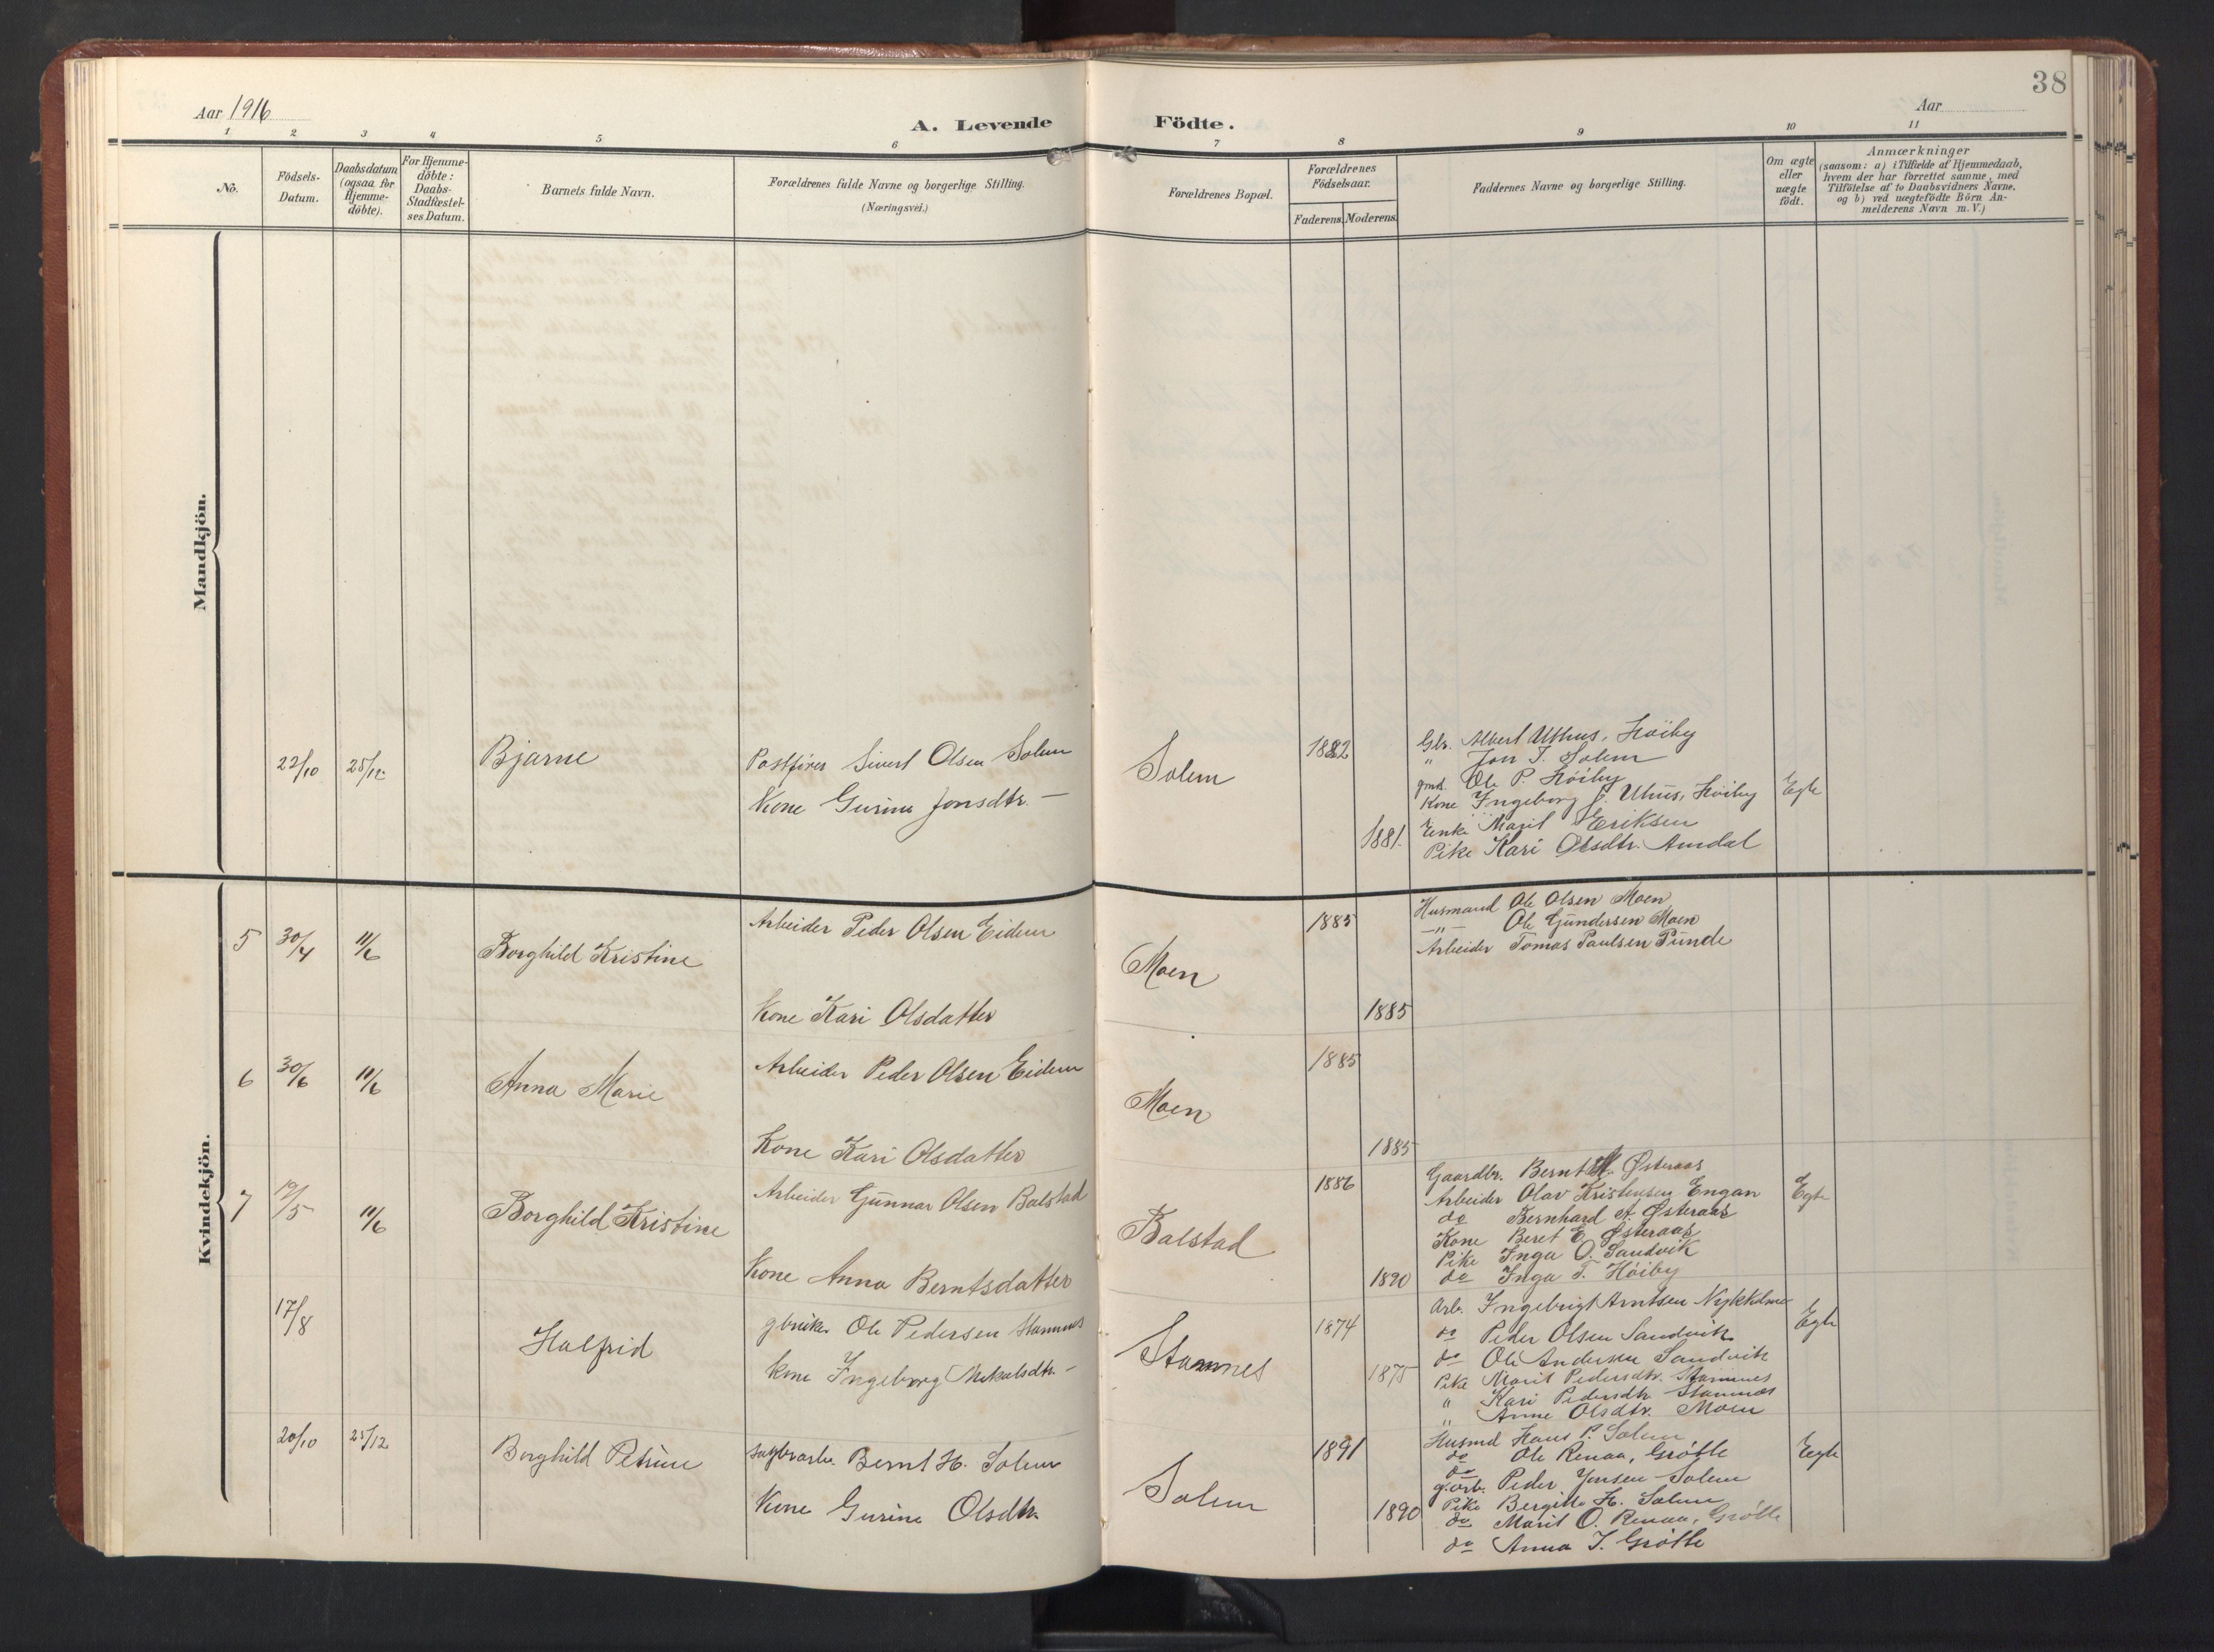 38
Aar 1916
Aar
A. Levende Födte.
1 2 3 4 5 6 7 8 9 10 11
No.
Födsels-
Datum.
Daabsdatum
(ogsaa for
Hjemme-
döbte).
For Hjemme-
döbte:
Daabs-
Stadfæstel-
ses Datum.
Barnets fulde Navn.
Forældrenes fulde Navne og borgerlige Stilling.
(Næringsvei.)
Forældrenes Bopæl.
Forældrenes
Födselsaar.
Faderens. Moderens.
Faddernes Navne og borgerlige Stilling.
Om ægte
eller
uægte
födt.
Anmærkninger
(saasom: a) i Tilfælde af Hjemmedaab,
hvem der har forrettet samme, med
Tilföielse af to Daabsvidners Navne,
og b) ved uægtefödte Börn An-
melderens Navn m. V.)
Mandkjön.
22/10 25/12 Bjarne
Postfører Sivert Olsen Solem
Kone Gurine Jonsdtr. —
Solem
1882
1881.
Gbr. Albert Høiby
" Jon J. Solem
gmd. Ole P. Høiby
Kone Ingeborg Høiby
Enke Marit Eriksen
Pike Kari Olsdtr. Amdal
Egte
Kvindekjön.
5 30/4 11/6 Borghild Kristine
Arbeider Peder Olsen Eidem
Kone Kari Olsdatter
Moen
1885
1885
Husmand Ole Olsen Moen
—"— Ole Gundersen Moen
Arbeider Tomas Paulsen Punde
6 30/6 11/6 Anna Marie
Arbeider Peder Olsen Eidem
Kone Kari Olsdatter
Moen
1885
1885
7 19/5 11/6 Borghild Kristine
Arbeider Gunnar Olsen Balstad
Kone Anna Berntsdatter
Balstad
1886
1890
Gaardbr. Bernt Østeraas
Arbeider Olav Kristensen Engan
do Bernhard A. Østeraas
Kone Beret E. Østeraas
Pike Inga O. Sandvik
do Inga T. Høiby
Egte
17/8 Halfrid
gbruker Ole Pedersen Stamnes
Kone Ingeborg Mikalsdtr. —
Stamnes
1874
1875
Arb. Ingebrigt Arntsen
do Peder Olsen Sandvik
do Ole Andersen Sandvik
Pike Marit Pedersdtr. Stamnes
" Kari Pedersdtr Stamnes
" Anne Olsdtr. Moen
Egte
20/10 25/12 Borghild Petrine
sagbrarb. Bernt H. Solem
Kone Gurine Olsdtr.
Solem
1891
1890
Husmd Hans P. Solem
do Ole Renaa, Grøtte
do
g.arb. Peder Jonsen Solem
Pike Bergitte H. Solem
do Marit O. Renaa, Grøtte
do Anna J. Grøtte
Egte